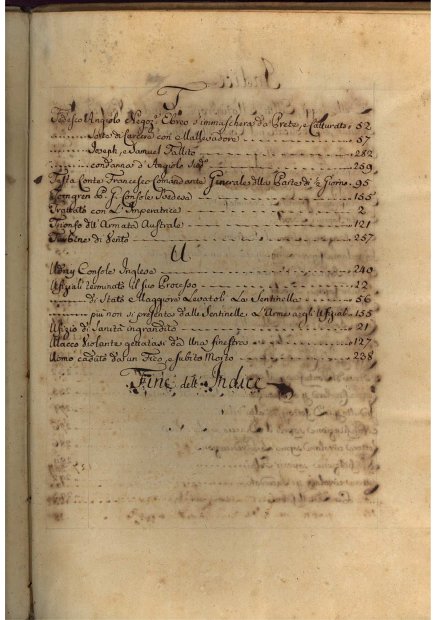 T
Tedesco Angiolo Negoz.e Ebreo s'immaschera da Prete, e Catturato 52
Sorte di Carcere con Mallevadore 57
Joseph, e Samuel Fallito 282
condanna d'Angiolo 259
Testa Conte Francesco Comandante Generale della Parte di ½ Giorno 95
Console Svedese 155
Trattato con L'Imperatrice 2
Trionfo dell' Armata Australe 121
Turbine di Vento 257
U
Udny Console Inglese 240
Ufiziali terminato il suo Processo 22
di Stato Maggiore Levatoli La Sentinella 56
più non si presenta dalle Sentinelle L'Arme agli Ufiziali 155
Ufizio di Sanità ingrandito 21
Violante gettatasi da Una finestra 127
Uomo caduto da un Tetto, e subito Morto 238
Fine dell' Indice